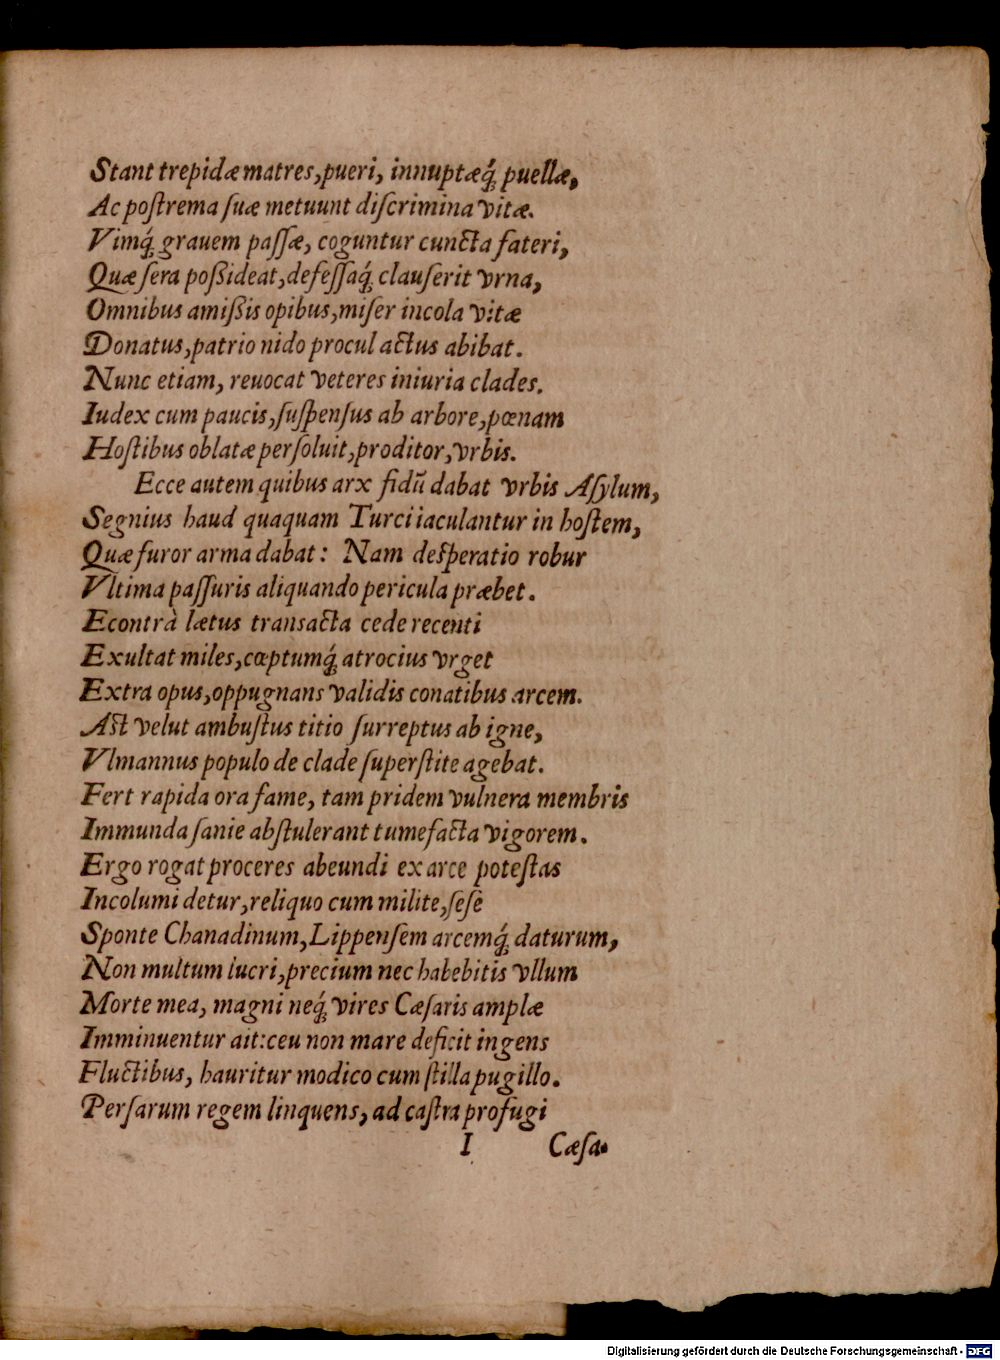 Stant trepidæ matres, pueri, innuptæq́; puellæ,
Ac poſtrema ſuæ metuunt diſcrimina vitæ.
Vimq́; grauem paſſæ, coguntur cuncta fateri,
Quæ ſera poßideat, defeſſaq́; clauſerit vrna,
Omnibus amißis opibus, miſer incola vitæ
Donatus, patrio nido procul actus abibat.
Nunc etiam, reuocat veteres iniuria clades.
Iudex cum paucis, ſuſpenſus ab arbore, pœnam
Hoſtibus oblatæ perſoluit, proditor, vrbis.
Ecce autem quibus arx fidũ dabat vrbis Aſylum,
Segnius haud quaquam Turci iaculantur in hoſtem,
Quæ furor arma dabat: Nam deſperatio robur
Vltima paſſuris aliquando pericula præbet.
Econtrà lætus transacta cede recenti
Exultat miles, cœptumq́; atrocius vrget
Extra opus, oppugnans validis conatibus arcem.
Aſt velut ambuſtus titio ſurreptus ab igne,
Vlmannus populo de clade ſuperſtite agebat.
Fert rapida ora fame, tam pridem vulnera membris
Immunda ſanie abſtulerant tumefacta vigorem.
Ergo rogat proceres abeundi ex arce poteſtas
Incolumi detur, reliquo cum milite, ſeſe
Sponte Chanadinum, Lippenſem arcemq́; daturum,
Non multum lucri, precium nec habebitis vllum
Morte mea, magni neq́; vires Cæſaris amplæ
Imminuentur ait: ceu non mare deficit ingens
Fluctibus, hauritur modico cum ſtilla pugillo.
Perſarum regem linquens, ad caſtra profugi
I Cæſa-
Digitalisierung gefördert durch die Deutsche Forschungsgemeinschaft - DFG